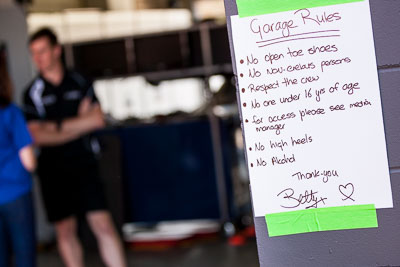 Garage Rules
• No open toe shoes
• No Non-crew/as persons
• Respect the crew
• No one under 16 yrs of age
• for access please see media
manager
• No high heels
• No Alcohol
Thank-you
Betty x ♡